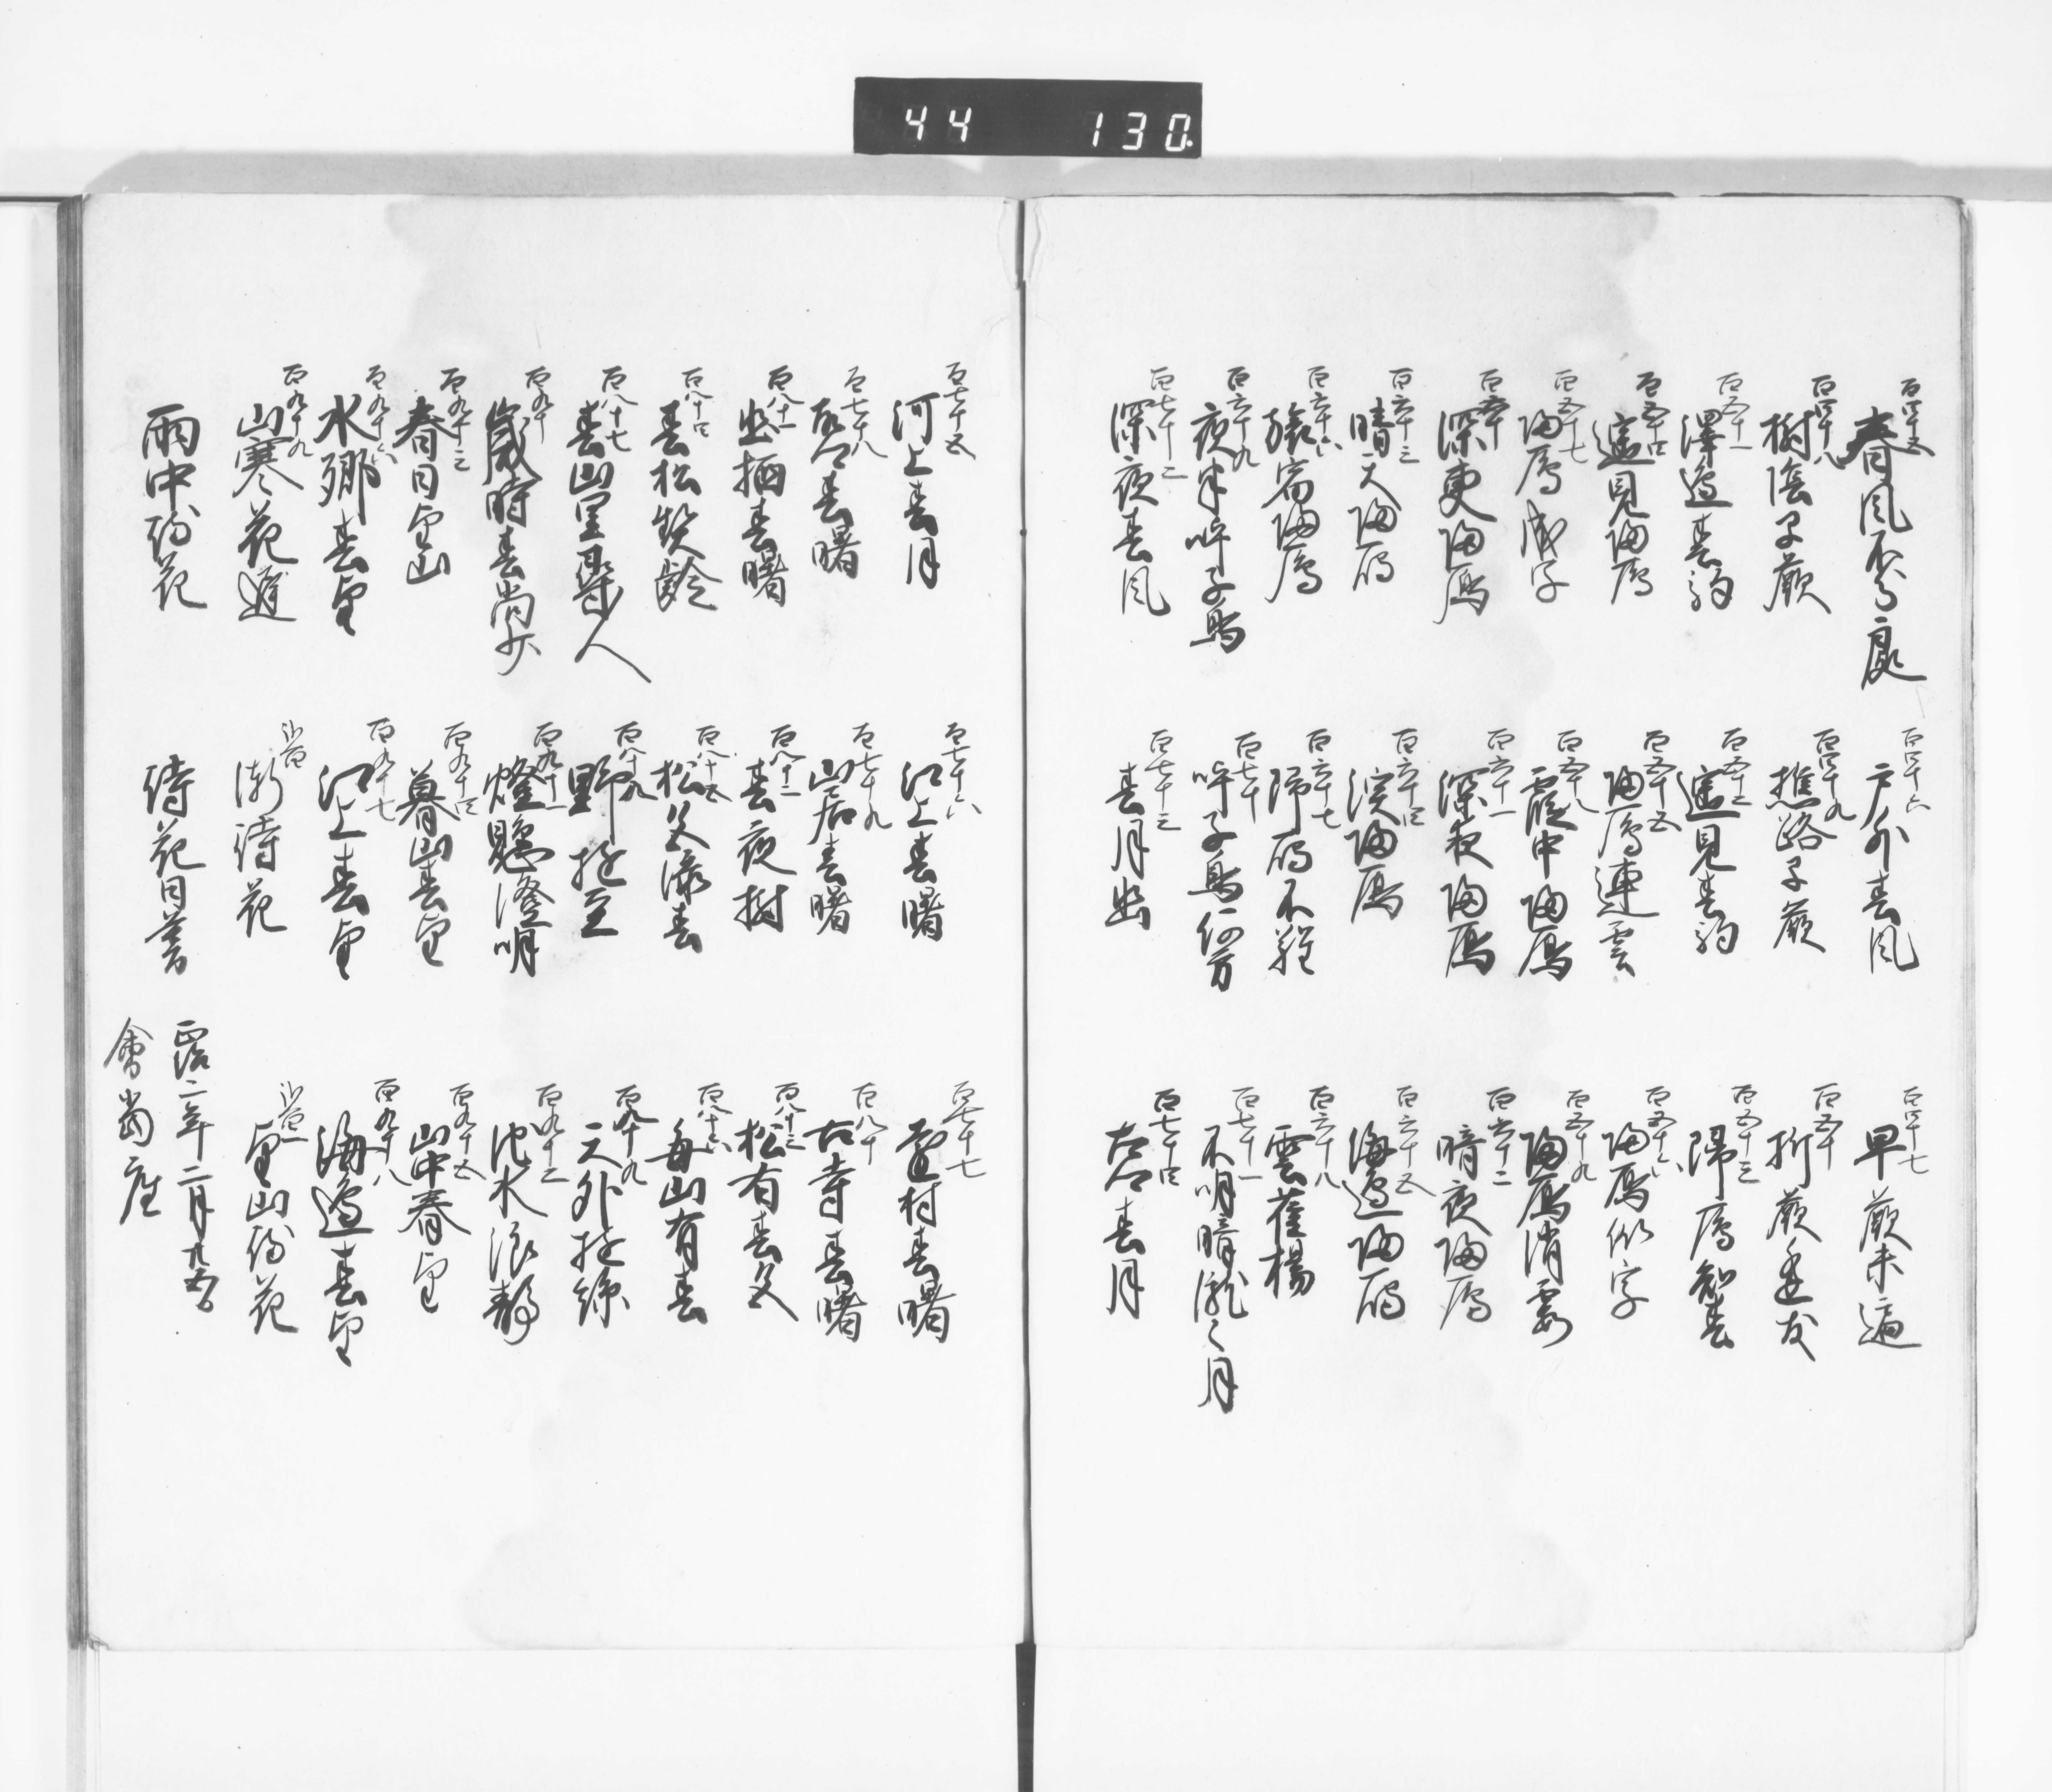 44 130
百四十五 春風不分處
百四十六 戸外春風
百四十七 早蕨未遍
百四十八 樹陰早蕨
百四十九 樵路早蕨
百五十 折蕨逢友
百五十一 澤邊春駒
百五十二 遠見春駒
百五十三 歸鴈知春
百五十四 遠見歸鴈
百五十五 歸鴈連雲
百五十六 歸鴈似字
百五十七 歸鴈成字
百五十八 霞中歸鴈
百五十九 歸鴈消霞
百六十 深更歸鴈
百六十一 深夜歸鴈
百六十二 暗夜歸鴈
百六十三 晴天歸鴈
百六十四 濱歸鴈
百六十五 海邊歸鴈
百六十六 旅宿歸鴈
百六十七 帰鴈不難
百六十八 雲雀揚
百六十九 夜半呼子鳥
百七十 呼子鳥何方
百七十一 不明暗朧々月
百七十二 深夜春風
百七十三 春月幽
百七十四 古春月
百七十五 河上春月
百七十六 江上春曙
百七十七 遠村春曙
百七十八 春曙
百七十九 山居春曙
百八十 古寺春曙
百八十一 幽栖春曙
百八十二 春夜樹
百八十三 松有春久
百八十四 春松契齢
百八十五 松久添春
百八十六 毎山有春
百八十七 春山里聚人
百八十九 野遊至
百八十九 天外遊絲
百九十 歳時春尚少
百九十一 燈懸澄明
百九十二 池水浪静
百九十三 春日望山
百九十四 暮山春望
百九十五 山中春望
百九十六 水郷春望
百九十七 江上春望
百九十八 海邊春望
百九十九 山寒花遅
弐百 漸待花
弐百一 望山待花
雨中待花
待花日暮
正治二年二月九
會當座